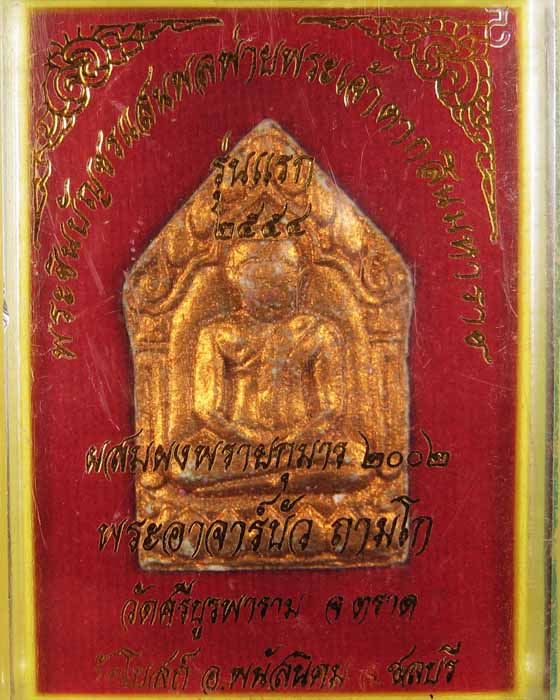 พระชินบัญชรแสนพลพ่ายพระเจ้าตากสินมหาราช
รุ่นแรก
๒๕๕๔
ผสมผงพรายกุมาร ๒๐๐๒
พระอาจาร์บัว ถามโก
วัดศรีบูรพาราม จ.ตราด
อ.พนัสนิคม ชลบุรี